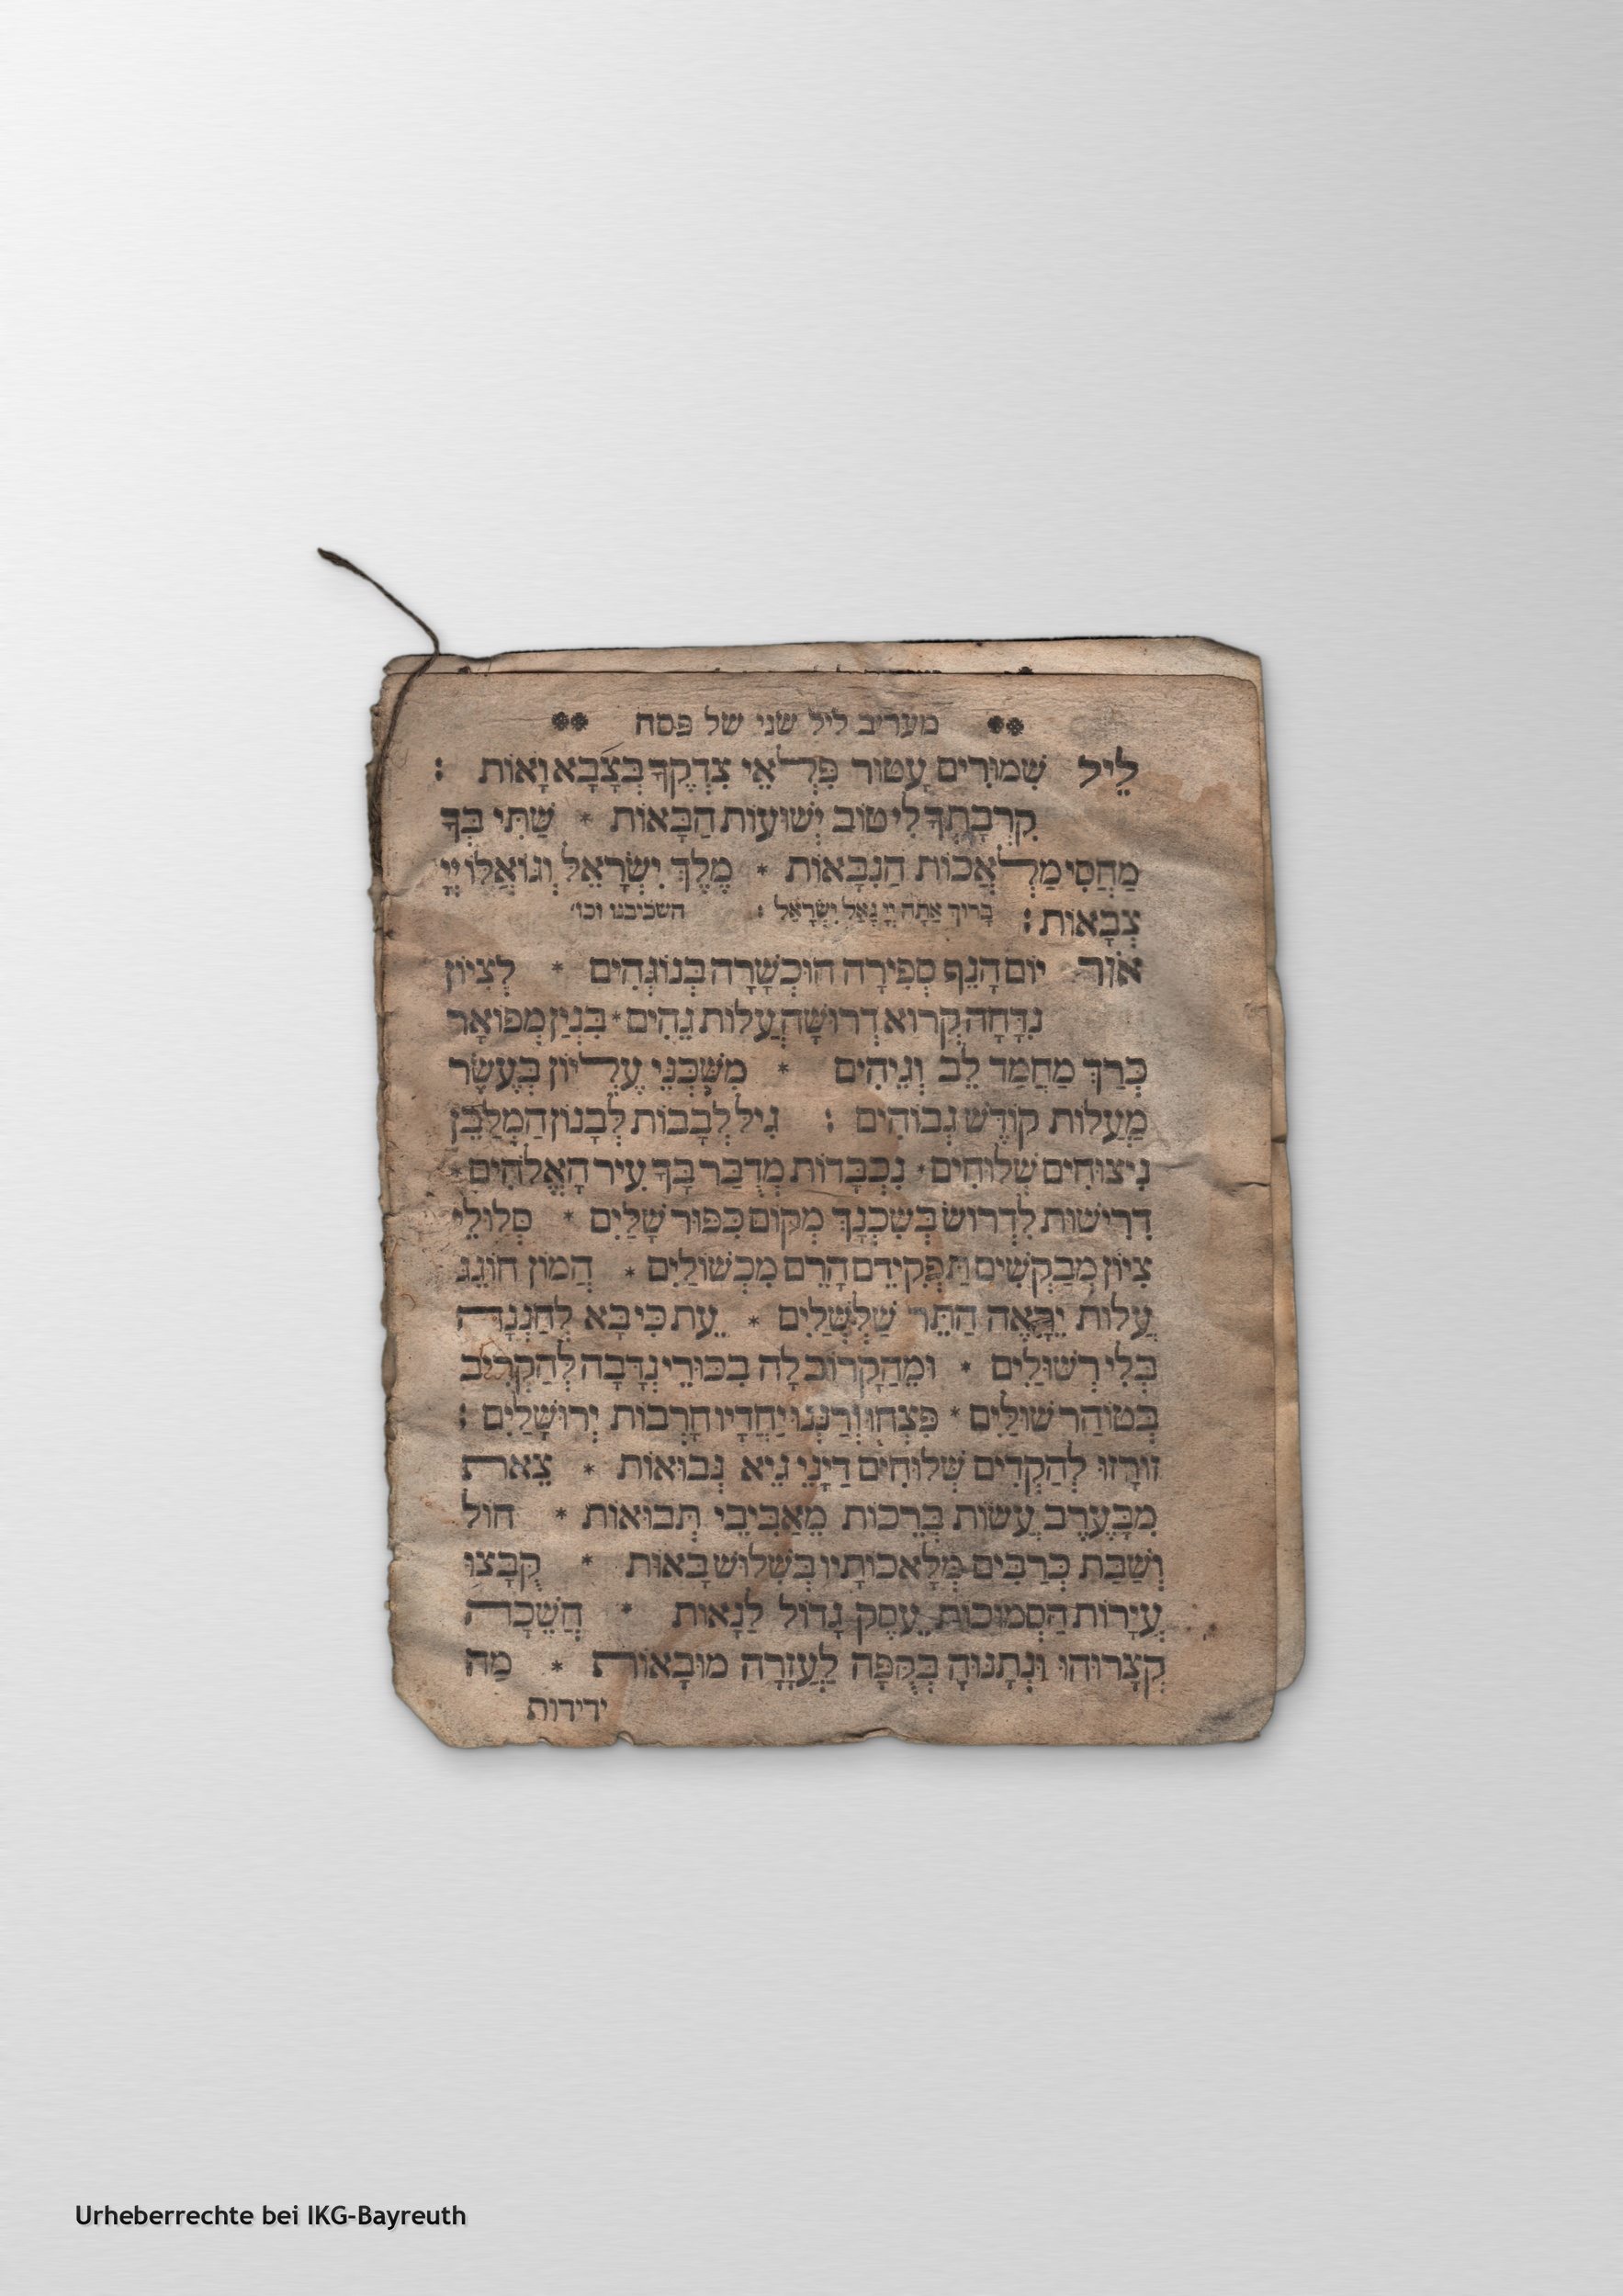 מעריב ליל שני של פסח
לֵיל שִׁמוּרִים עָטוּר פִּלְאֵי צִדְקֶךָ בְּצָבָא וָאוֹת :
קִרְבָתְךָ לִי טוֹב יְשׁוּעוֹת הַבָּאוֹת * שַׁתִּי בְּךָ
מַחֲסִי מַלְאֲכוֹת הַנִבָּאוֹת * מֶלֶךְ יִשְׂרָאֵל וְגוֹאֲלוֹ יְיָ
צְבָאוֹת : בָּרוּךְ אַתָּה יְיָ גָאַל יִשְׂרָאֵל : השכיבנו וכו'
אוֹר יוֹם הָנֵף סְפִירָה הוּכְשָׁרָה בְּנוֹגְהִים * לְצִיוֹן
נִדָּחָה קְרוּא דְרוּשָׁה עֲלוֹת גֵהִים * בִּנְיַן מְפוֹאָר
כְּרַךְ מַחֲמַד לֵב וְגֵיהִים * מִשְׁכְּנֵי עֶלְיוֹן בְּעֶשֶׂר
מַעֲלוֹת קוֹדֶשׁ גְבוֹהִים : גִיל לְבָבוֹת לְבָנוֹן הַמְלַבֵּן
נִיצוּחִים שְׁלוּחִים * נִכְבָּדוֹת מְדְבַּר בָּךְ עִיר הָאֱלֹהִים *
דְרִישׁוֹת לִדְרוֹשׁ בְּשִׁכְנָךְ מְקוֹם כִּפּוּר שָׁלַיִם * סְלוּלֵי
צִיוֹן מְבַקְשִׁים תַּפְקִידֵם הָרֵם מִכְשׁוֹלַיִם * הֲמוֹן חוֹגֵג
עֲלוֹת יֵרָאֶה הַתֵּר שַׁלְשְׁלַיִם * עֵת כִּי בָּא לְחַנְנָהּ
בְּלִי רְשׁוּלַיִם * וּמֵהַקְרוֹב לָהּ בִכּוּרֵי נְדָבָה לְהַקְרִיב
בְּטוֹהַר שׁוּלַיִם * פִּצְחוּ וְרַנְּנוּ יַחְדָיו חָרְבוֹת יְרוּשָׁלַיִם :
זוֹרָזוּ לְהַקְדִים שְׁלוּחִים דַיָנֵי גֵיא נְבוּאוֹת * צֵאת
מִבָּעֶרֶב עֲשׂוֹת בְּרֵכוֹת מֵאֲבִיבֵי תְּבוּאוֹת * חוֹל
וְשַׁבַּת כְּרַבִּים מְלָאכוֹתָיו בְּשָׁלוֹשׁ בָּאוֹת * קֻבָּצוּ
עֲיָרוֹת הַסְמוּכוֹת עֵסֶק גָדוֹל לַנָאוֹת * הֲשֵׁכָת
קְצָרוּהוּ וּנְתָנוּהָ בְּקֻפָּה לַעֲזָרָה מוּבָאוֹת * מַה
ידידות
Urheberrechte bei IKG-Bayreuth